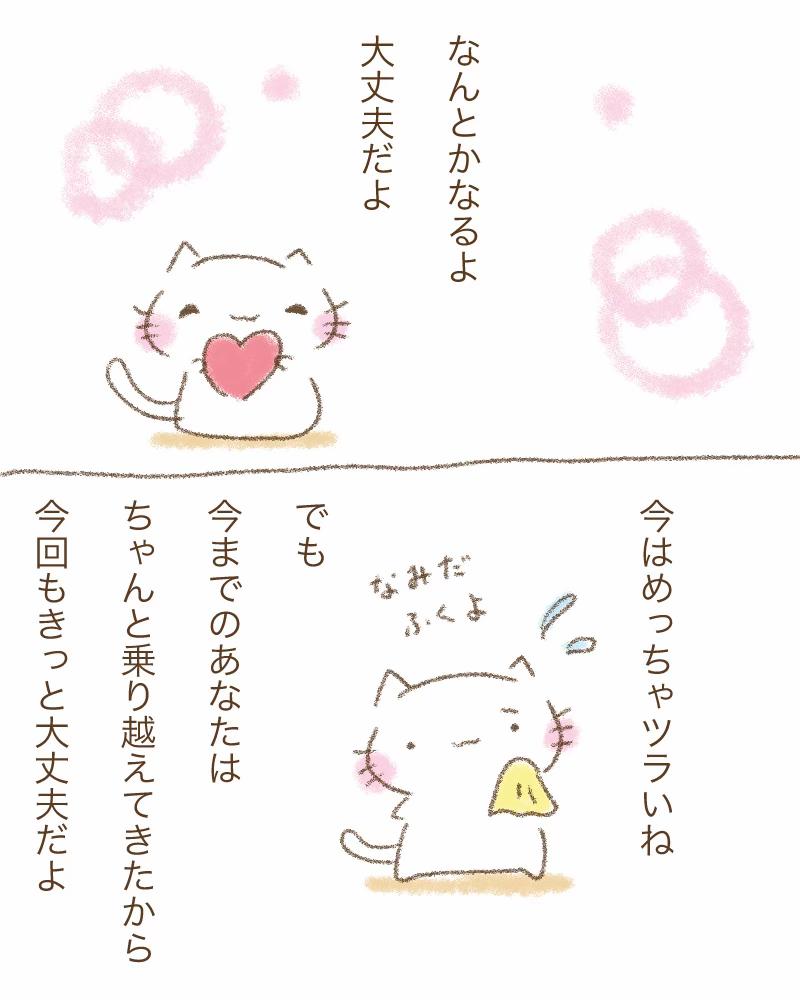 なんとかなるよ
大丈夫だよ
今はめっちゃツラいね
なみだ
ふくよ
でも
今までのあなたは
ちゃんと乗り越えてきたから
今回もきっと大丈夫だよ